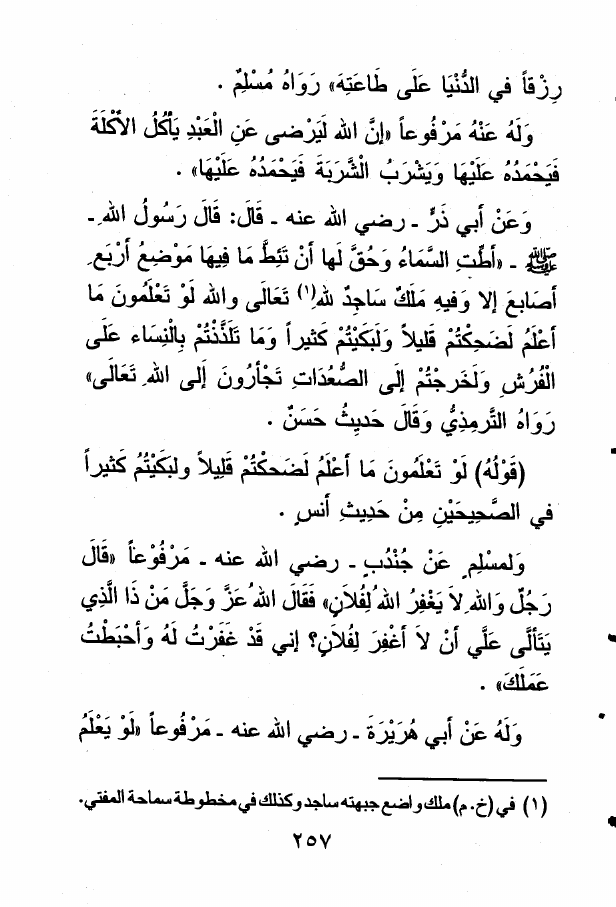 رِزْقاً في الدُّنْيَا عَلَى طَاعَتِهَ» رَوَاهُ مُسْلِمٌ .
وَلَهُ عَنْهُ مَرْفُوعاً «إنَّ الله لَيَرْضى عَنِ الْعَبْدِ يَأكُلُ الأكْلَةَ
فَيَحْمَدُهُ عَلَيْها وَيَشْرَبُ الْشَّرَبَةَ فَيَحْمَدُهُ عَلَيْهَا» .
وَعَنْ أبي ذَرٍّ ـ رضي الله عنه ـ قَالَ: قَالَ رَسُولُ اللهِ ـ
ﷺ ـ «أطَّتِ السَّمَاءُ وَحُقَّ لَها أنْ تَئِطَّ مَا فِيهَا مَوْضِعُ أرْبَعِ
أصَابعَ إلا وَفيهِ مَلَكٌ سَاجِدٌ للهِ(١) تَعَالَى والله لَوْ تَعْلَمُونَ مَا
أعْلَمُ لَضَحِكْتُمْ قَليلاً وَلَبَكَيْتُمْ كَثيراً وَمَا تَلَذَّذْتُمْ بِالْنِساء عَلَى
الْفُرُشِ وَلَخَرجْتُمْ إلَى الصُّعُدَاتِ تَجْأرُونَ إلى اللهِ تَعَالَى»
رَوَاهُ التَّرمِذِيُّ وَقَالَ حَديِثٌ حَسَنٌ .
(قَوْلُهُ) لَوْ تَعْلَمُونَ مَا أعْلَمُ لَضَحكْتُمْ قَلِيلاً ولبَكَيْتُمُ كَثيراً
في الصَّحِيحَيْنِ مِنْ حَدِيثِ أنَسٍ .
وَلمسْلِمٍ عَنْ جُنْدُبٍ ـ رضي الله عنه ـ مَرْفُوْعاً «قَالَ
رَجُلٌ وَاللهِ لاَ يَغْفِرُ اللهُ لِفُلاَنٍ» فَقَالَ اللهُ عَزَّ وَجَلَّ مَنْ ذَا الَّذِي
يَتَألَّى عَلَّي أنْ لاَ أغْفِرَ لِفُلاَنٍ؟ إني قَدْ غَفَرْتُ لَهُ وَأحْبَطْتُ
عَمَلَكَ» .
وَلَهُ عَنْ أبي هُرَيْرَةَ ـ رضي الله عنه ـ مَرْفُوعاً «لَوْ يَعْلَمُ
(١) في (خ.م) ملك واضع جبهته ساجد وكذلك في مخطوطة سماحة المفتي.
٢٥٧